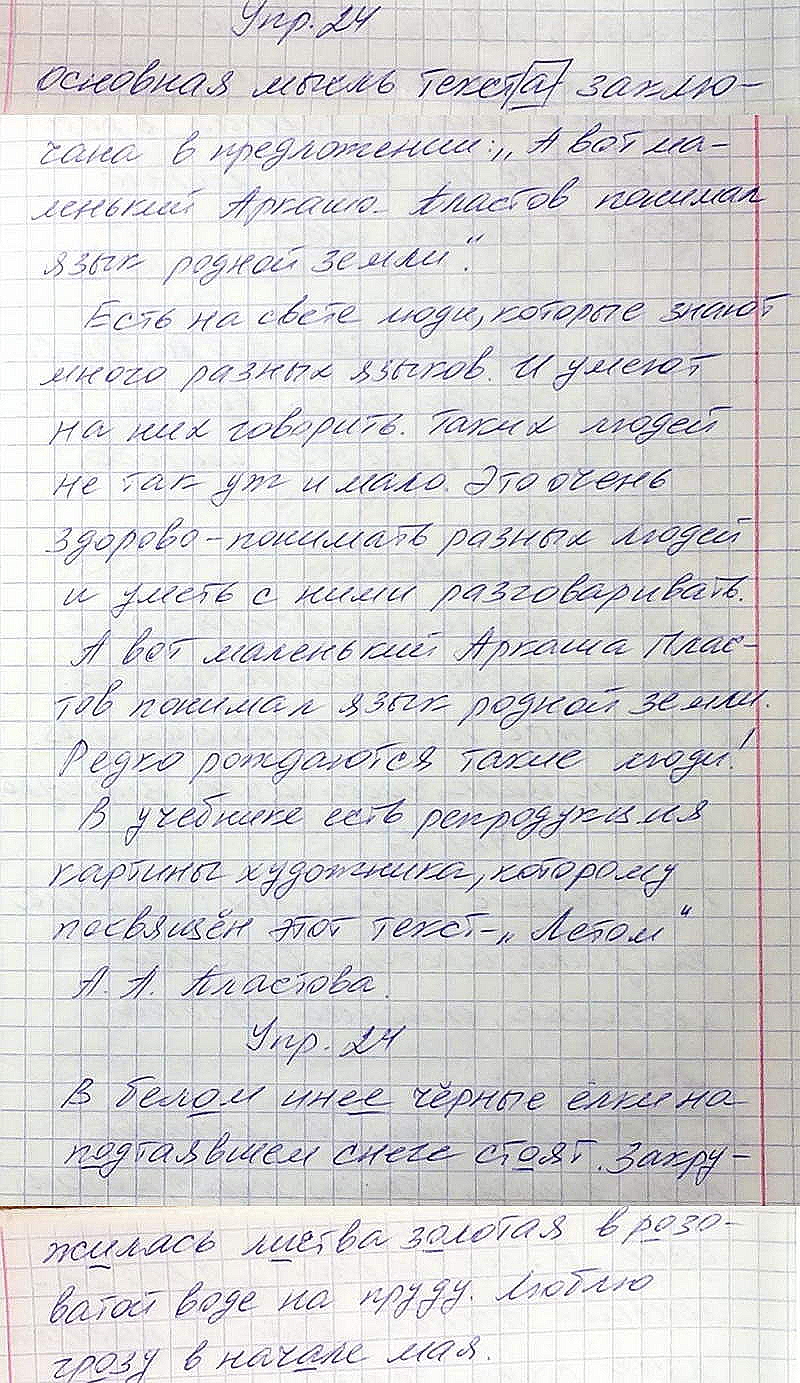 Упр. 24
основная мысль текста заклю-
чана в предложении: „А вот ма-
ленький Аркаша Пластов понимал
язык родной земли".
Есть на свете люди, которые знают
много разных языков. И умеют
на них говорить. Таких людей
не так уж и мало. Это очень
здорово - понимать разных людей
и уметь с ними разговаривать.
А вот маленький Аркаша Плас-
тов понимал язык родной земли.
Редко рождаются такие люди!
В учебнике есть репродукция
картины художника, которому
посвящён этот текст - „Летом"
А. А. Пластова.
Упр. 24
В белом инее чёрные ёлки на
подтаявшем снеге стоят. Закру-
жилась листва золотая в розо-
ватой воде на пруду. Люблю
грозу в начале мая.